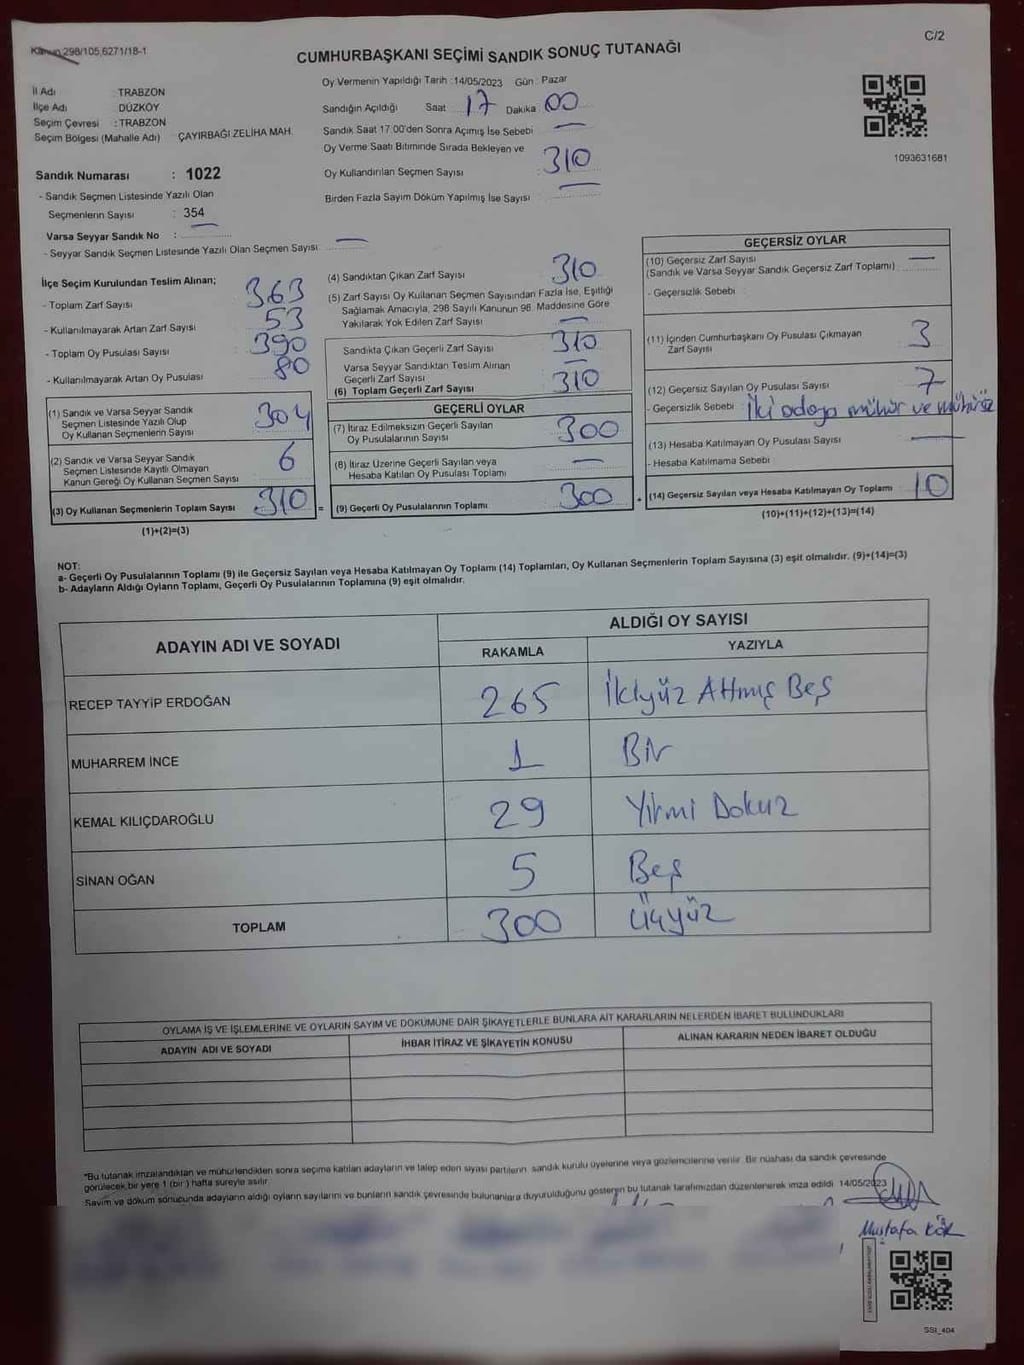 C/2
Kanun 298/105,6271/18-1
CUMHURBAŞKANI SEÇİMİ SANDIK SONUÇ TUTANAĞI
İl Adı : TRABZON
İlçe Adı DÜZKÖY
Seçim Çevresi : TRABZON
Seçim Bölgesi (Mahalle Adı) ÇAYIRBAĞI ZELİHA MAH.
Oy Vermenin Yapıldığı Tarih :14/05/2023 Gün: Pazar
Sandığın Açıldığı Saat 17 Dakika 00
Sandık Saat 17.00'den Sonra Açımış İse Sebebi —
Oy Verme Saati Bitiminde Sırada Bekleyen ve
Oy Kullandırılan Seçmen Sayısı 310
Birden Fazla Sayım Döküm Yapılmış İse Sayısı —
1093631681
Sandık Numarası : 1022
- Sandık Seçmen Listesinde Yazılı Olan
Seçmenlerin Sayısı : 354
Varsa Seyyar Sandık No : —
- Seyyar Sandık Seçmen Listesinde Yazılı Olan Seçmen Sayısı: —
İlçe Seçim Kurulundan Teslim Alınan;
- Toplam Zarf Sayısı 363
- Kullanılmayarak Artan Zarf Sayısı 53
- Toplam Oy Pusulası Sayısı 390
- Kullanılmayarak Artan Oy Pusulası 80
(1) Sandık ve Varsa Seyyar Sandık
Seçmen Listesinde Yazılı Olup
Oy Kullanan Seçmenlerin Sayısı 304
(2) Sandık ve Varsa Seyyar Sandık
Seçmen Listesinde Kayıtlı Olmayan
Kanun Gereği Oy Kullanan Seçmen Sayısı 6
(3) Oy Kullanan Seçmenlerin Toplam Sayısı 310 =
(1)+(2)=(3)
(4) Sandıktan Çıkan Zarf Sayısı 310
(5) Zarf Sayısı Oy Kullanan Seçmen Sayısından Fazla İse, Eşitliği
Sağlamak Amacıyla, 298 Sayılı Kanunun 98. Maddesine Göre
Yakılarak Yok Edilen Zarf Sayısı —
Sandıkta Çıkan Geçerli Zarf Sayısı 310
Varsa Seyyar Sandıktan Teslim Alınan
Geçerli Zarf Sayısı —
(6) Toplam Geçerli Zarf Sayısı 310
GEÇERLİ OYLAR
(7) İtiraz Edilmeksizin Geçerli Sayılan
Oy Pusulalarının Sayısı 300
(8) İtiraz Üzerine Geçerli Sayılan veya
Hesaba Katılan Oy Pusulası Toplamı —
(9) Geçerli Oy Pusulalarının Toplamı 300 +
GEÇERSİZ OYLAR
(10) Geçersiz Zarf Sayısı —
(Sandık ve Varsa Seyyar Sandık Geçersiz Zarf Toplamı)
- Geçersizlik Sebebi :
(11) İçinden Cumhurbaşkanı Oy Pusulası Çıkmayan
Zarf Sayısı 3
(12) Geçersiz Sayılan Oy Pusulası Sayısı 7
- Geçersizlik Sebebi : İki adaya mühür ve mühürsüz
(13) Hesaba Katılmayan Oy Pusulası Sayısı —
- Hesaba Katılmama Sebebi
(14) Geçersiz Sayılan veya Hesaba Katılmayan Oy Toplamı 10
(10)+(11)+(12)+(13)=(14)
NOT:
a- Geçerli Oy Pusulalarının Toplamı (9) ile Geçersiz Sayılan veya Hesaba Katılmayan Oy Toplamı (14) Toplamları, Oy Kullanan Seçmenlerin Toplam Sayısına (3) eşit olmalıdır. (9)+(14)=(3)
b- Adayların Aldığı Oyların Toplamı, Geçerli Oy Pusulalarının Toplamına (9) eşit olmalıdır.
ADAYIN ADI VE SOYADI ALDIĞI OY SAYISI
RAKAMLA YAZIYLA
RECEP TAYYİP ERDOĞAN 265 İkiyüz Altmış Beş
MUHARREM İNCE 1 Bir
KEMAL KILIÇDAROĞLU 29 Yirmi Dokuz
SİNAN OĞAN 5 Beş
TOPLAM 300 Üçyüz
OYLAMA İŞ VE İŞLEMLERİNE VE OYLARIN SAYIM VE DÖKÜMÜNE DAİR ŞİKAYETLERLE BUNLARA AİT KARARLARIN NELERDEN İBARET BULUNDUKLARI
ADAYIN ADI VE SOYADI İHBAR İTİRAZ VE ŞİKAYETİN KONUSU ALINAN KARARIN NEDEN İBARET OLDUĞU
*Bu tutanak imzalandıktan ve mühürlendikten sonra seçime katılan adayların ve talep eden siyasi partilerin sandık kurulu üyelerine veya gözlemcilerine verilir. Bir nüshası da sandık çevresinde
görülecek bir yere 1 (bir) hafta süreyle asılır.
Sayım ve döküm sonucunda adayların aldığı oyların sayılarını ve bunların sandık çevresinde bulunanlara duyurulduğunu gösteren bu tutanak tarafımızdan düzenlenerek imza edildi. 14/05/2023
Mustafa Kök
SSİ_404